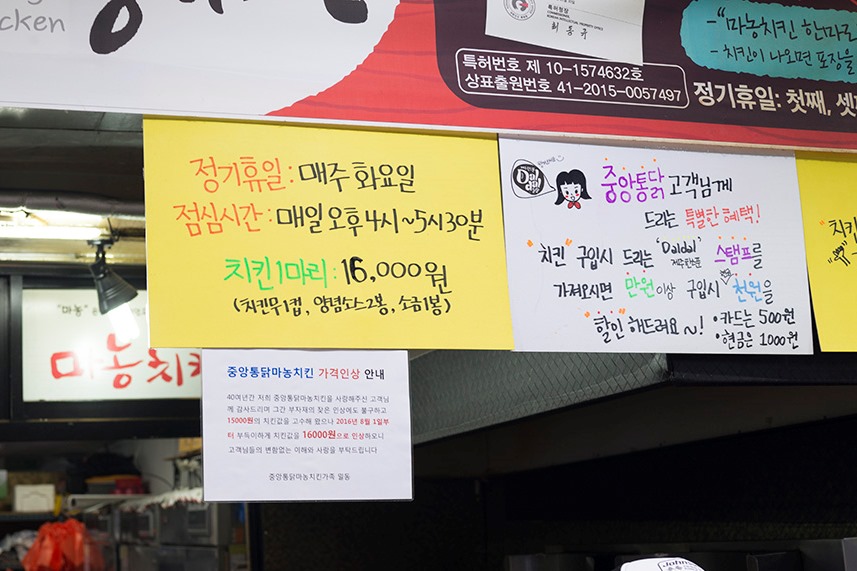 cken
특허청장
COMMISSIONER,
KOREAN INTELLECTUAL PROPERTY OFFICE
최동규
특허번호 제 10-1574632호
상표출원번호 41-2015-0057497
-"마농치킨 한마리
-치킨이 나오면 포장을
정기휴일: 첫째, 셋
정기휴일: 매주 화요일
점심시간: 매일 오후4시~5시30분
치킨1마리: 16,000원
(치킨무1컵, 양념소스2봉, 소금1봉)
Dal dal
중앙통닭 고객님께
드리는 특별한 혜택!
"치킨" 구입시 드리는 'Daldal' 스탬프를
가져오시면 만원이상 구입시 천원을
할인 해드려요~! •카드는 500원
•현금은 1000원
"치킨
"마농"
마농치킨
중앙통닭마농치킨 가격인상 안내
40여년간 저희 중앙통닭마농치킨을 사랑해주신 고객님
께 감사드리며 그간 부자재의 잦은 인상에도 불구하고
15000원의 치킨값을 고수해 왔으나 2016년 8월 1일부
터 부득이하게 치킨값을 16000원으로 인상하오니
고객님들의 변함없는 이해와 사랑을 부탁드립니다
중앙통닭마농치킨가족 일동